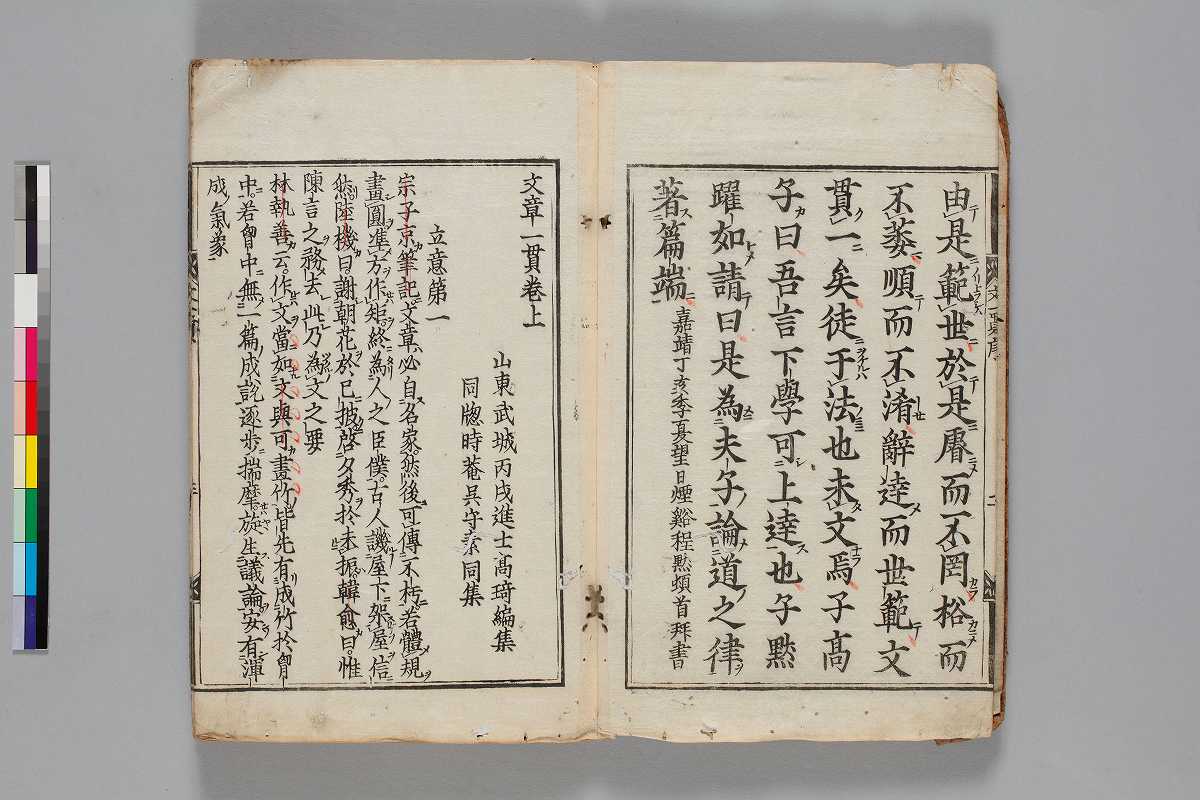 由是範世於是磨而不罔格而
不萎順而不淆辭達而世範文
貫一矣徒于法也未文焉子高
子曰吾言下學可上達也子黙
躍如請曰是為夫子論道之律
著篇端 嘉靖丁亥季夏望日煙谿程黙頓首拜書
文章一貫卷上
山東武城丙戌進士髙琦編集
同牕時菴吳守素同集
立意第一
宗子京筆記文章必自名家然後可傳不朽若體規
畫圓準方作矩終為人之臣僕古人譏屋下架屋信
然陸機曰謝朝花於已披啓夕秀於未振韓愈曰惟
陳言之務去此乃為文之要
林執善云作文當如文與可畫竹皆先有成竹於胷
中若胷中無一篇成說逐步揣摩旋生議論安有渾
成氣象